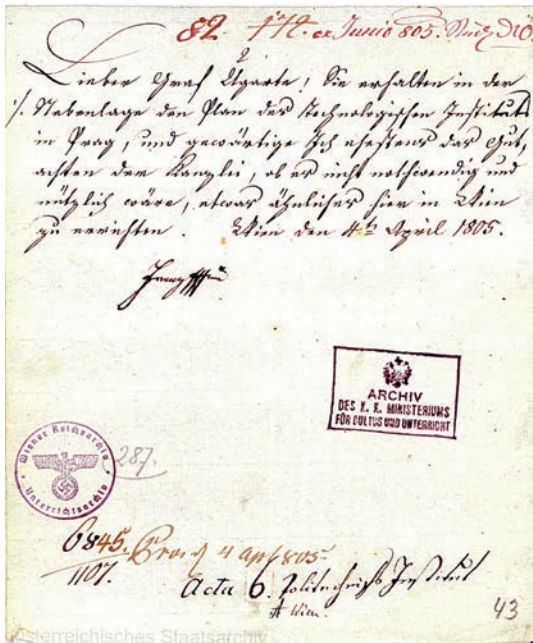 82. 112. ex Junio 805.
Lieber Graf Ugarte! Sie erhalten in der
./. Nebenlage den Plan des technologischen Instituts
in Prag, und gewärtige Ich ehestens das Gut,
achten der Kanzlei, ob es nicht nothwendig und
nützlich wäre, etwas ähnliches hier in Wien
zu errichten. Wien den 4ten April 1805.
Franz
ARCHIV
DES K. K. MINISTERIUMS
FÜR CULTUS UND UNTERRICHT
Wiener Reichsarchiv
Unterrichtsarchiv
287.
6845. 4 Apl 805
1107.
Acta 6. Politechnisches Institut
Wien.
43
Österreichisches Staatsarchiv